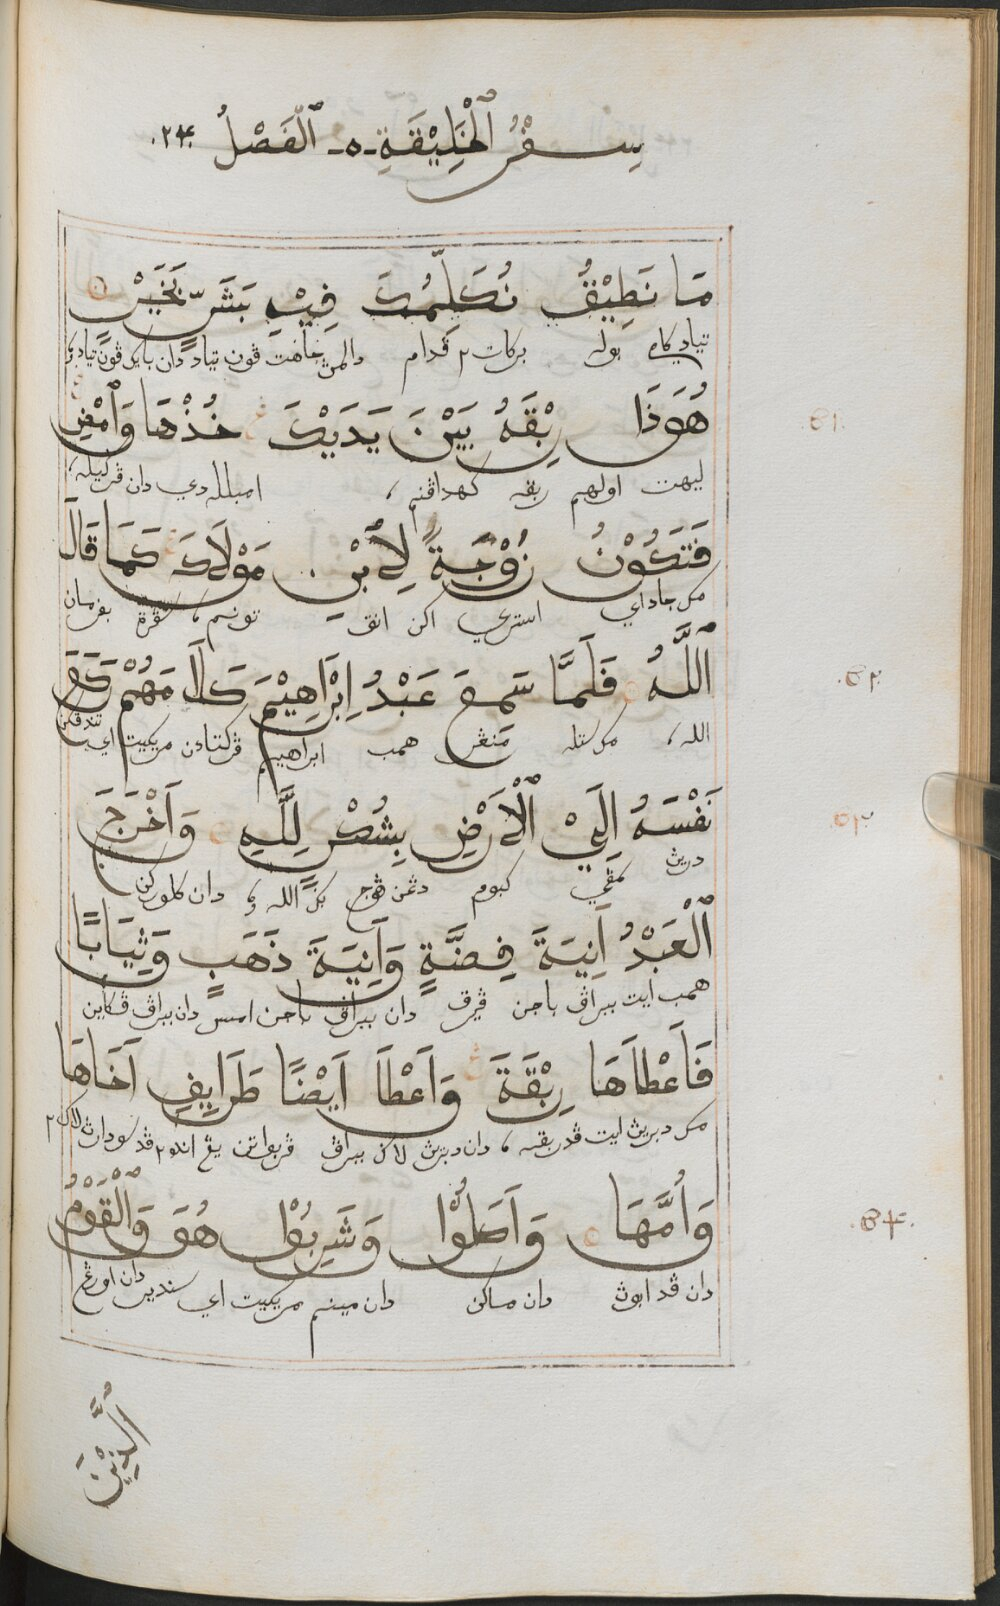 سِفْرُ ٱلْخَلِيْقَةِ -٥- ٱلْفَصْلُ ٢۴.
مَا نَطِيْقُ نُكَلِّمُكَ فِيْهِ بَشَرّ بَخَيْرْ
تياد كام بوله بركات٢ قدام دالمن
هُوَذَا رِبْقَهُ بَيْنَ يَدَيْكَ خُذْهَا وَٱمْضِ
٥١.
ليهت اولهم ربقه كهداڤنم، امبلله دي دان ڤرݢيله،
فَتَكُوْنُ زُوْجَةً لِاَبْنِ مَوْلَاكَ كَمَا قَالَ
مك جادي استري اكن انق توانم، سڤرة بفرمان
اَللَّهُ فَلَمَّا سَمِعَ عَبْدُ اِبْرَاهِيْمَ كَلَامَهُمْ رَكَعَ
.٥٢.
الله، مك ستله منڠر همب ابراهيم ڤركتادن مريكيت اي
نَفْسَهُ اِلَيْ ٱلْاَرْضِ بِشُكْرٍ لِلَّهِ وَاَخْرَجَ
٥٣.
دريڽ كبوم دڠن ڤوج الله دان كلوركن
ٱلْعَبْدُ اَنِيَةَ فِضَّةٍ وَاَنِيَةَ ذَهَبٍ وَثِيَابًا
همب ايت بيراڤ باجن ڤيرق دان بيراڤ باجن امس دان بيراڤ ڤكاين
فَاَعْطَاهَا رِبْقَةَ وَاَعْطَا اَيْضًا طَرَايِفِ اَخَاهَا
مك دبريڽ ايت ڤد ربقه، دان دبريڽ لاݢ بيراڤ ڤربواتن يڠ اندھ٢ ڤد سودارڽ لاكي٢
وَاُمَّهَا وَاَكَلُوْا وَشَرِبُوْا هُوَ وَٱلْقَوْمُ
.٥۴.
دان ڤد ابوڽ دان ماكن دان مينم مريكيت اي سنديري دان اورڠ
ٱلَّذِيْنَ